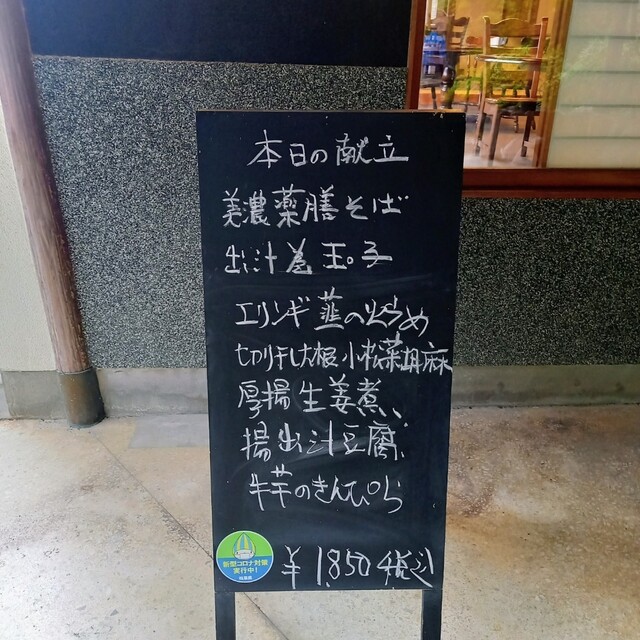 本日の献立
美濃薬膳そば
出汁巻玉子
エリンギ韮の炒め
切り干し大根小松菜胡麻
厚揚生姜煮
揚出汁豆腐
牛芋のきんぴら
新型コロナ対策
実行中!
¥1,850税込